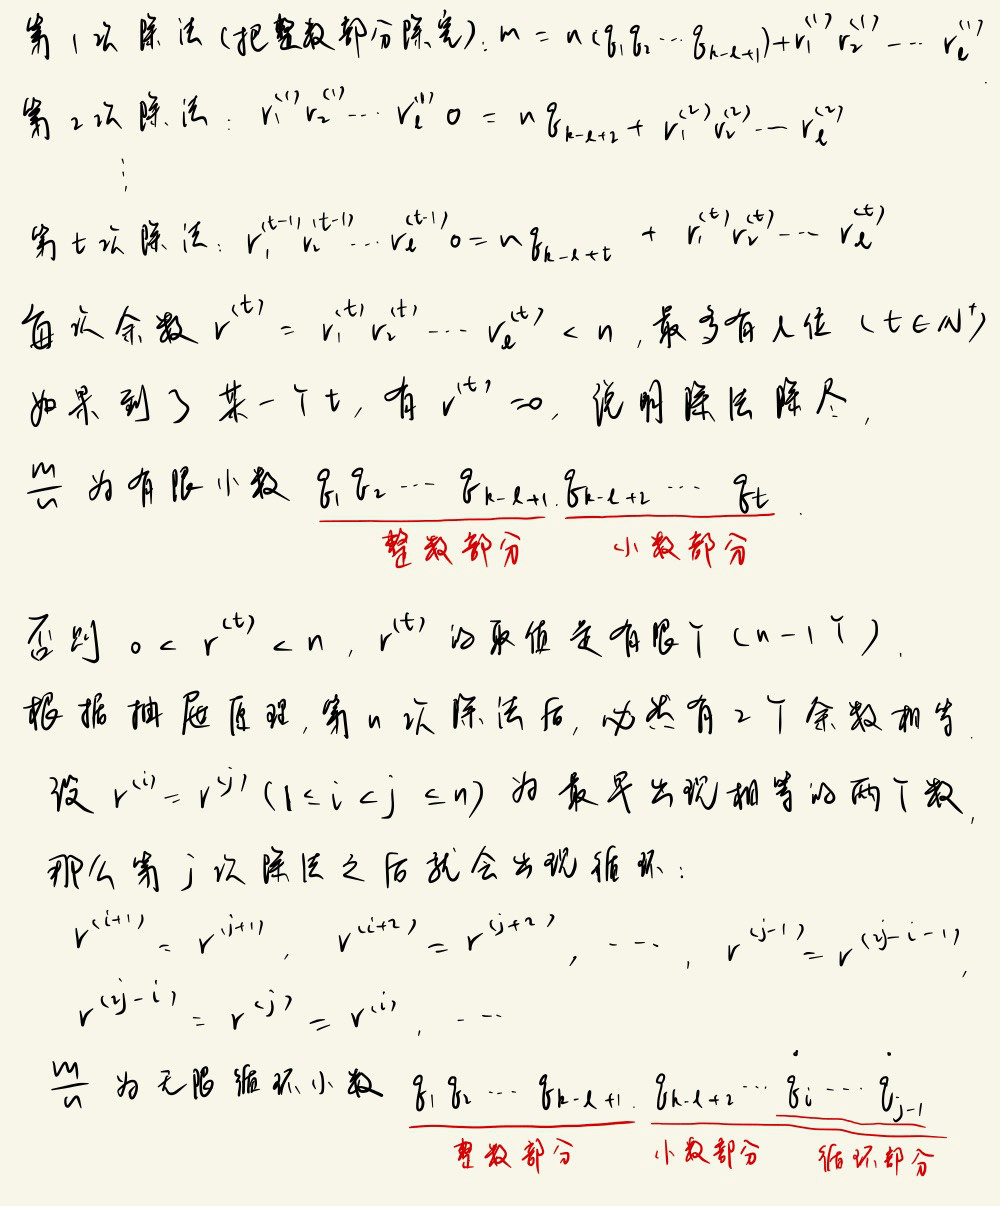 第1次除法(把整数部分除完): m = n(q₁q₂⋯q_{k-l+1}) + r₁⁽¹⁾r₂⁽¹⁾⋯r_l⁽¹⁾
第2次除法: r₁⁽¹⁾r₂⁽¹⁾⋯r_l⁽¹⁾0 = nq_{k-l+2} + r₁⁽²⁾r₂⁽²⁾⋯r_l⁽²⁾
⋮
第t次除法: r₁^{(t-1)}r₂^{(t-1)}⋯r_l^{(t-1)}0 = nq_{k-l+t} + r₁^{(t)}r₂^{(t)}⋯r_l^{(t)}
每次余数 r^{(t)} = r₁^{(t)}r₂^{(t)}⋯r_l^{(t)} < n, 最多有l位 (t∈N⁺)
如果到了某一个t, 有 r^{(t)}=0, 说明除法除尽,
m/n 为有限小数 q₁q₂⋯q_{k-l+1}.q_{k-l+2}⋯q_t.
整数部分 小数部分
否则 0 < r^{(t)} < n, r^{(t)} 的取值是有限个(n-1个).
根据抽屉原理, 第n次除法后, 必然有2个余数相等.
设 r^{(i)} = r^{(j)} (1≤i<j≤n) 为最早出现相等的两个数,
那么第j次除法之后就会出现循环:
r^{(i+1)} = r^{(j+1)}, r^{(i+2)} = r^{(j+2)}, ⋯, r^{(j-1)} = r^{(2j-i-1)},
r^{(2j-i)} = r^{(j)} = r^{(i)}, ⋯
m/n 为无限循环小数 q₁q₂⋯q_{k-l+1}.q_{k-l+2}⋯q̇_i⋯q̇_{j-1}
整数部分 小数部分 循环部分